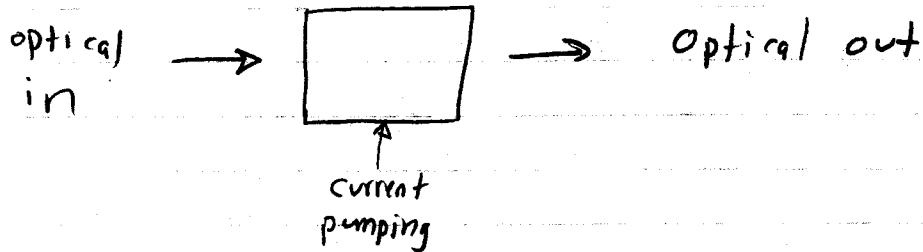 optical
in
Optical out
current
pumping